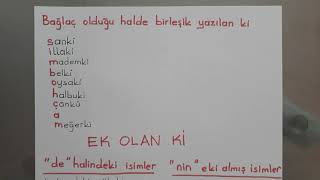 Bağlaç olduğu halde birleşik yazılan ki
sanki
illaki
mademki
belki
oysaki
halbuki
çünkü
a
meğerki
EK OLAN Kİ
"de" halindeki isimler "nin" eki almış isimler